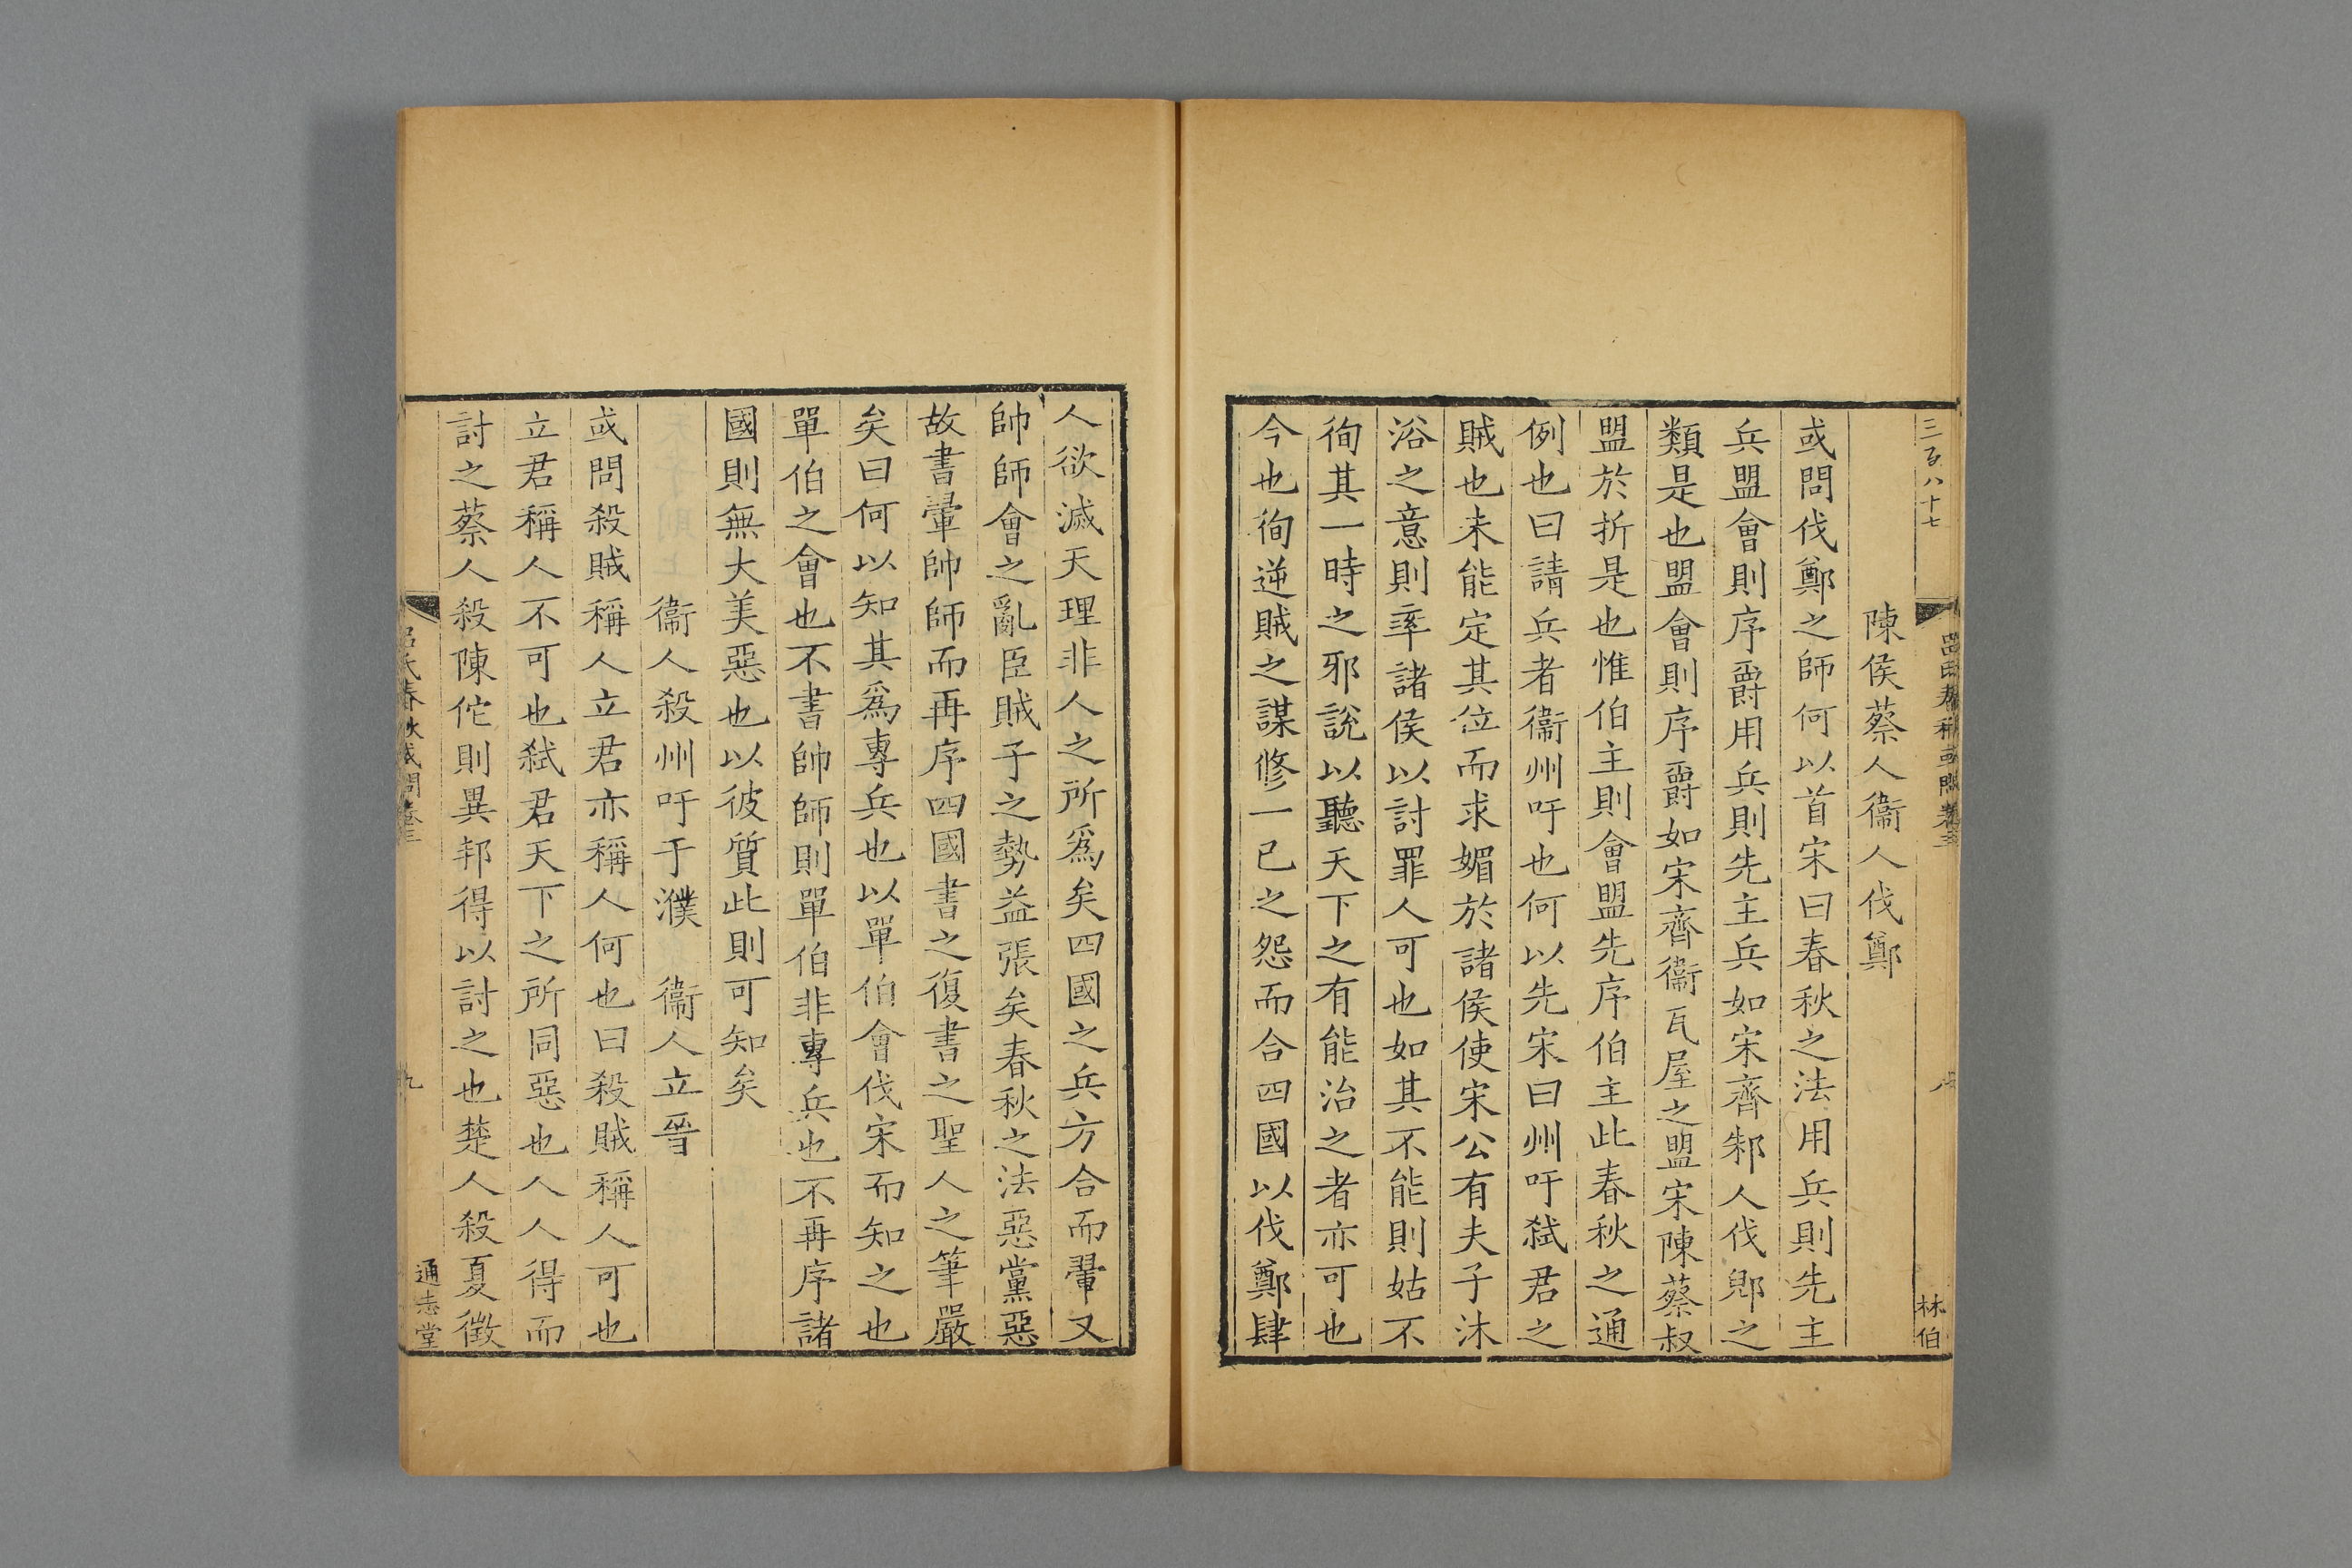 三百八十七
林伯
陳侯蔡人衞人伐鄭
或問伐鄭之師何以首宋曰春秋之法用兵則先主
兵盟會則序爵用兵則先主兵如宋齊邾人伐郳之
類是也盟會則序爵如宋齊衞瓦屋之盟宋陳蔡叔
盟於折是也惟伯主則會盟先序伯主此春秋之通
例也曰請兵者衞州吁也何以先宋曰州吁弑君之
賊也未能定其位而求媚於諸侯使宋公有夫子沐
浴之意則率諸侯以討罪人可也如其不能則姑不
徇其一時之邪說以聽天下之有能治之者亦可也
今也徇逆賊之謀修一已之怨而合四國以伐鄭肆
人欲滅天理非人之所爲矣四國之兵方合而翬又
帥師會之亂臣賊子之勢益張矣春秋之法惡黨惡
故書翬帥師而再序四國書之復書之聖人之筆嚴
矣曰何以知其爲專兵也以單伯會伐宋而知之也
單伯之會也不書帥師則單伯非專兵也不再序諸
國則無大美惡也以彼質此則可知矣
衞人殺州吁于濮　衞人立晉
或問殺賊稱人立君亦稱人何也曰殺賊稱人可也
立君稱人不可也弑君天下之所同惡也人人得而
討之蔡人殺陳佗則異邦得以討之也楚人殺夏徵
呂氏春秋或問卷三
九
通志堂